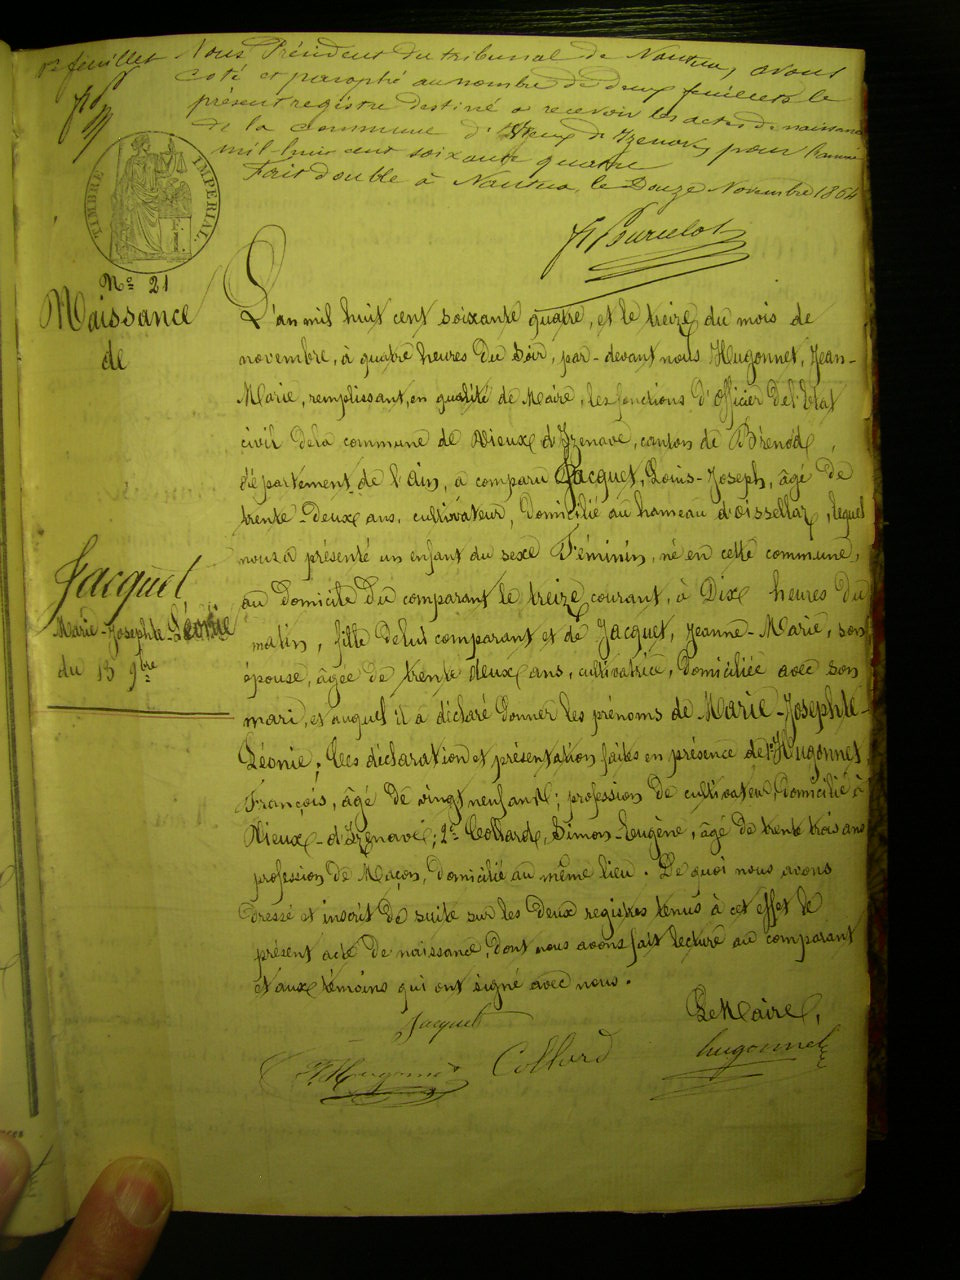 1er feuillet Nous Président du tribunal de Nantua, avons
coté et paraphé au nombre de deux feuillets le
présent registre destiné a recevoir les actes de naissance
de la commune d' Vieux d'Izenave, pour l'année
mil huit cent soixante quatre
Fait double à Nantua, le Douze Novembre 1864
TIMBRE IMPERIAL
No 21
Naissance
de
Jacquet
Marie-Josephte-Léonie
du 13 9bre
L'an mil huit cent soixante quatre, et le treize du mois de
novembre, à quatre heures du soir, par-devant nous Hugonnet, Jean-
Marie, remplissant, en qualité de Maire, les fonctions d'officier de l'Etat
civil de la commune de Vieux d'Izenave, canton de Brénod,
département de l'Ain, a comparu Jacquet, Louis-Joseph, âgé de
trente-deux ans, cultivateur, domicilié au hameau d'oisselaz, lequel
nous a présenté un enfant du sexe Féminin, né en cette commune,
au domicile du comparant le treize courant, à Dix heures du
matin, fille de lui comparant et de Jacquet, Jeanne-Marie, son
épouse, âgée de trente deux ans, cultivatrice, domiciliée avec son
mari, et auquel il a déclaré donner les prénoms de Marie-Josephte-
Léonie; les déclaration et présentation faites en présence de 1o Hugonnet
François, âgé de vingt neuf ans; profession de cultivateur, domicilié à
Vieux-d'Izenave; 2o Collard, Simon-Eugène, âgé de trente trois ans
profession de Maçon, domicilié au même lieu. De quoi nous avons
dressé et inscrit de suite sur les deux registres tenus à cet effet le
présent acte de naissance, dont nous avons fait lecture au comparant
et aux témoins qui ont signé avec nous.
Jacquet Le Maire,
F Hugonnet Collard hugonnet